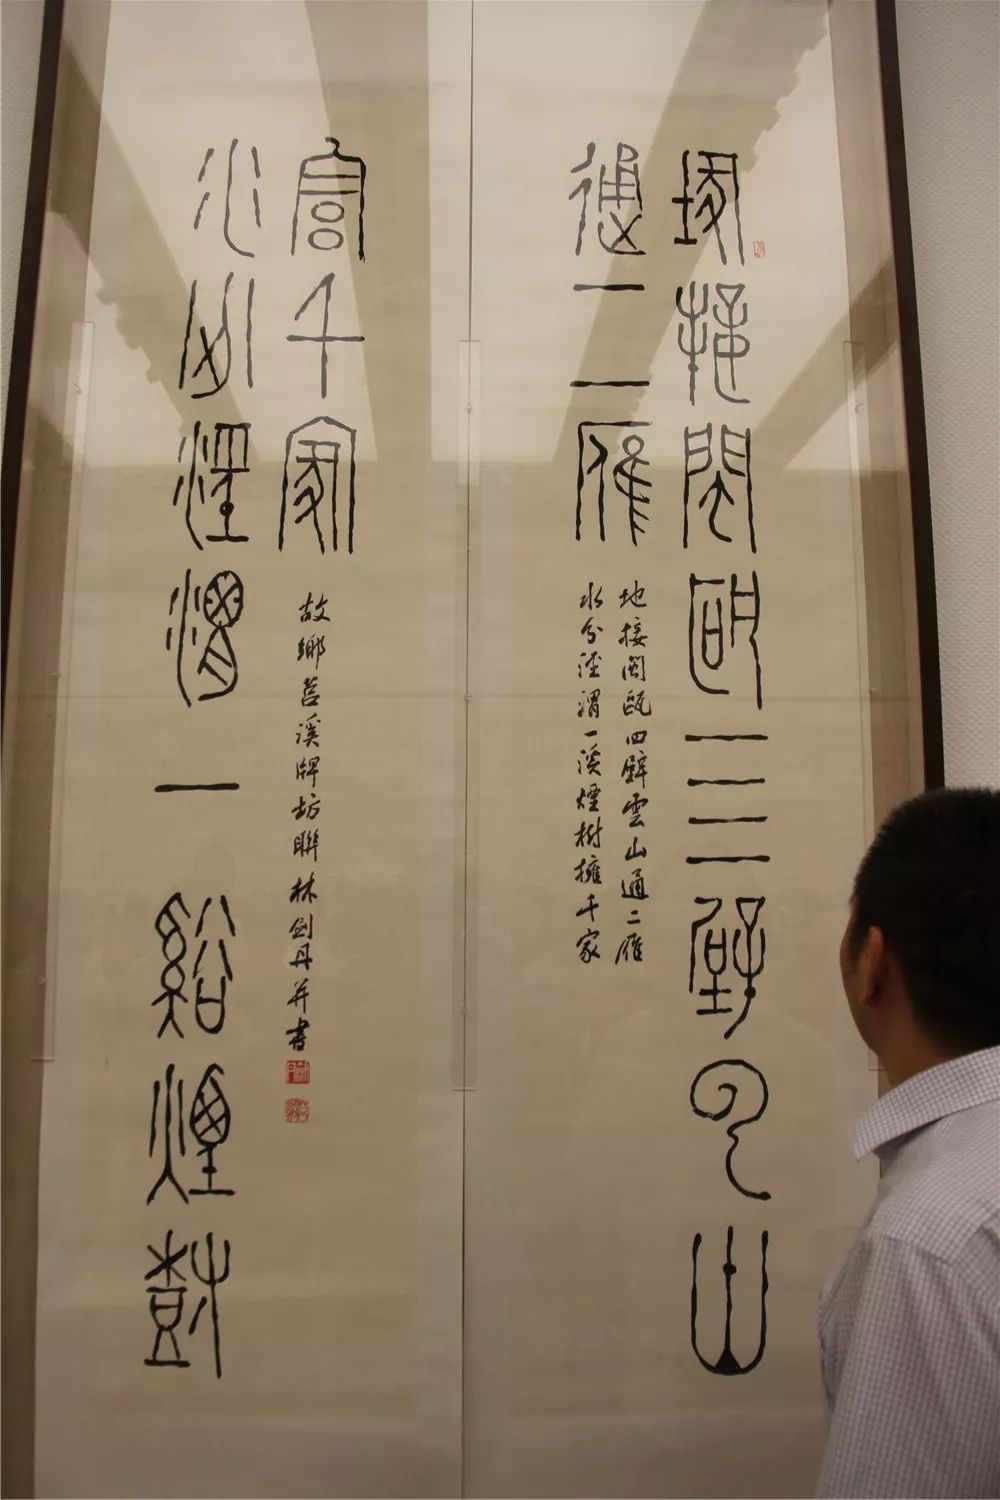 地接閩甌亖壁雲山
通二雁
地接閩甌四壁雲山通二雁
水分涇渭一溪煙樹擁千家
水分涇渭一谿煙樹
千家
故鄉莒溪牌坊聯林劍丹并書